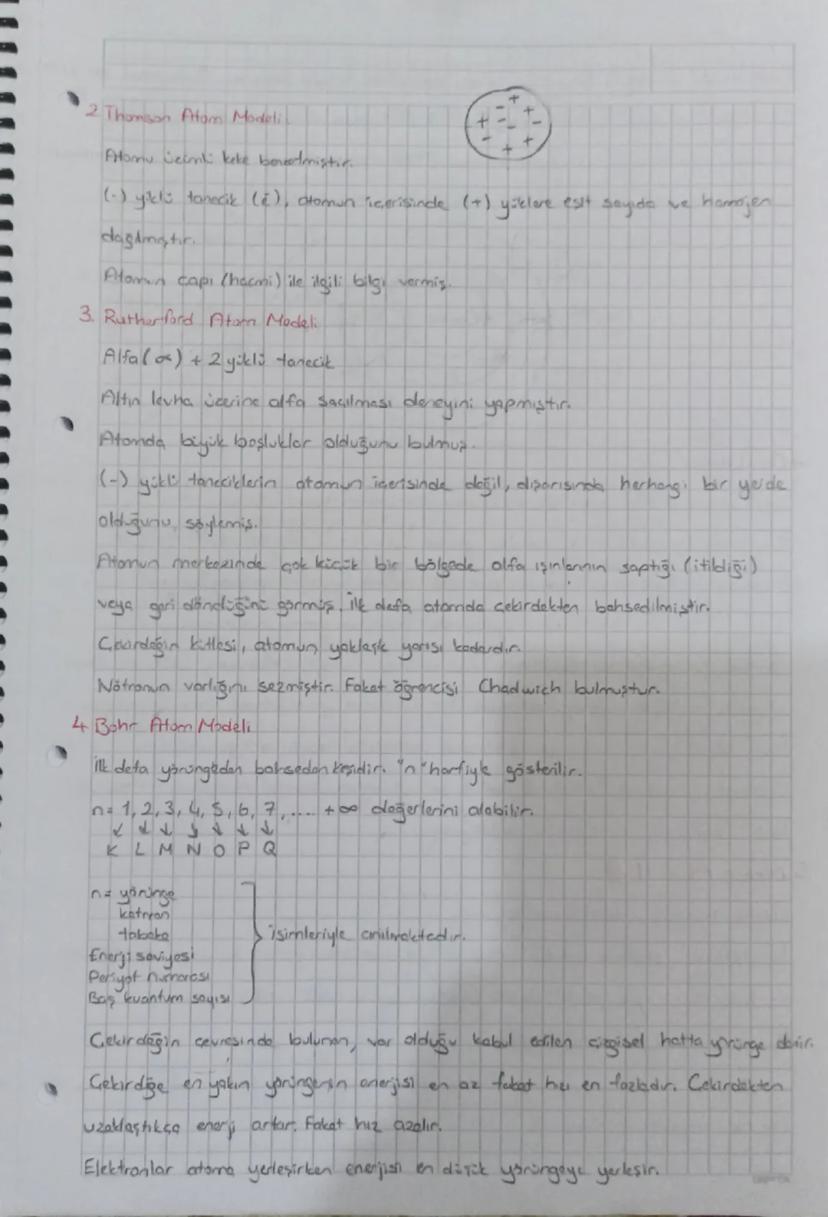 2 Thomson Atom Modeli
Atomu üzümlü keke benzetmiştir.
(-) yüklü tanecik (ē), atomun içerisinde (+) yüklere eşit sayıda ve homojen
dağılmıştır.
Atomun çapı (hacmi) ile ilgili bilgi vermiş.
3. Rutherford Atom Modeli
Alfa (α) +2 yüklü tanecik
Altın levha üzerine alfa saçılması deneyini yapmıştır.
Atomda büyük boşluklar olduğunu bulmuş.
(-) yüklü taneciklerin atomun içerisinde değil, dışarısında herhangi bir yerde
olduğunu söylemiş.
Atomun merkezinde çok küçük bir bölgede alfa ışınlarının saptığı (itildiği)
veya geri döndüğünü görmüş. İlk defa atomda çekirdekten bahsedilmiştir.
Çekirdeğin kütlesi, atomun yaklaşık yarısı kadardır.
Nötronun varlığını sezmiştir. Fakat öğrencisi Chadwich bulmuştur.
4 Bohr Atom Modeli
İlk defa yörüngeden bahseden kişidir. "n" harfiyle gösterilir.
n= 1, 2, 3, 4, 5, 6, 7, .... +∞ değerlerini alabilir.
↓ ↓ ↓ ↓ ↓ ↓ ↓
K L M N O P Q
n= yörünge
katman
tabaka
isimleriyle anılmaktadır.
Enerji seviyesi
Periyot numarası
Baş kuantum sayısı
Çekirdeğin çevresinde bulunan, var olduğu kabul edilen çizgisel hatta yörünge denir.
Çekirdiğe en yakın yörüngenin enerjisi en az fakat hızı en fazladır. Çekirdekten
uzaklaştıkça enerji artar. Fakat hız azalır.
Elektronlar atoma yerleşirken enerjisi en düşük yörüngeye yerleşir.